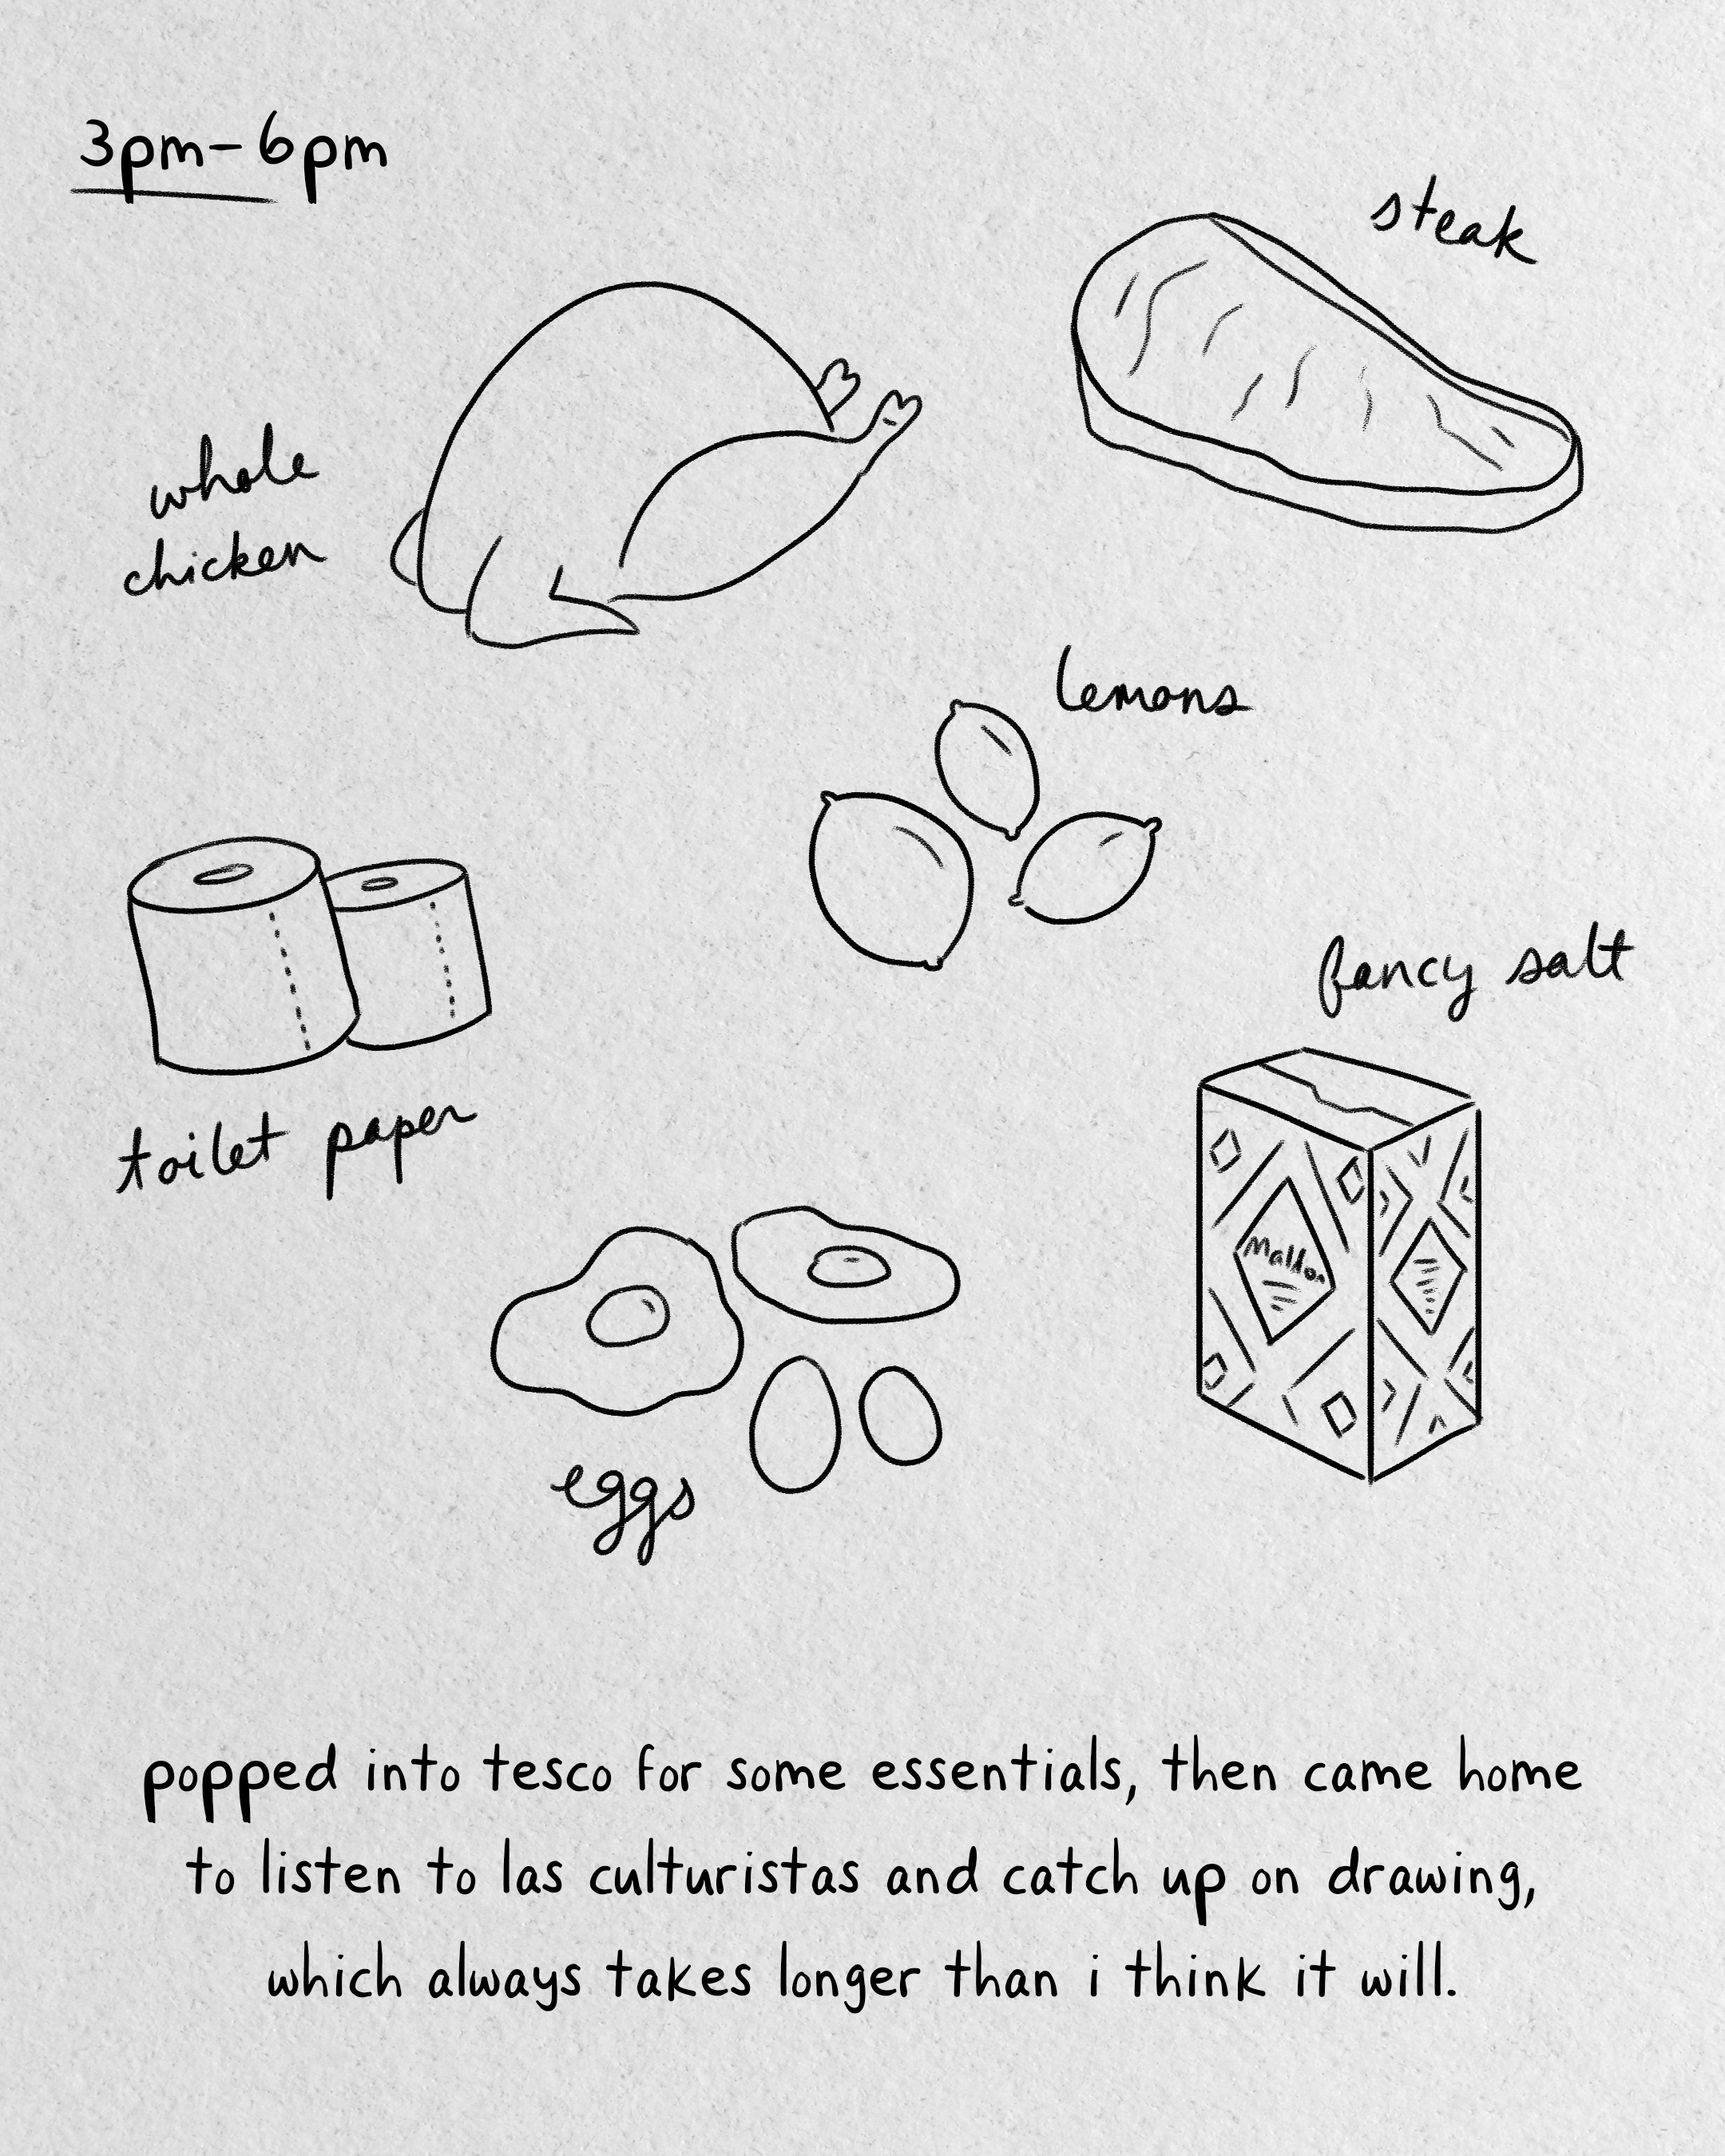 3pm-6pm
steak
whole
chicken
lemons
fancy salt
toilet paper
Maldon
eggs
popped into tesco for some essentials, then came home
to listen to las culturistas and catch up on drawing,
which always takes longer than i think it will.